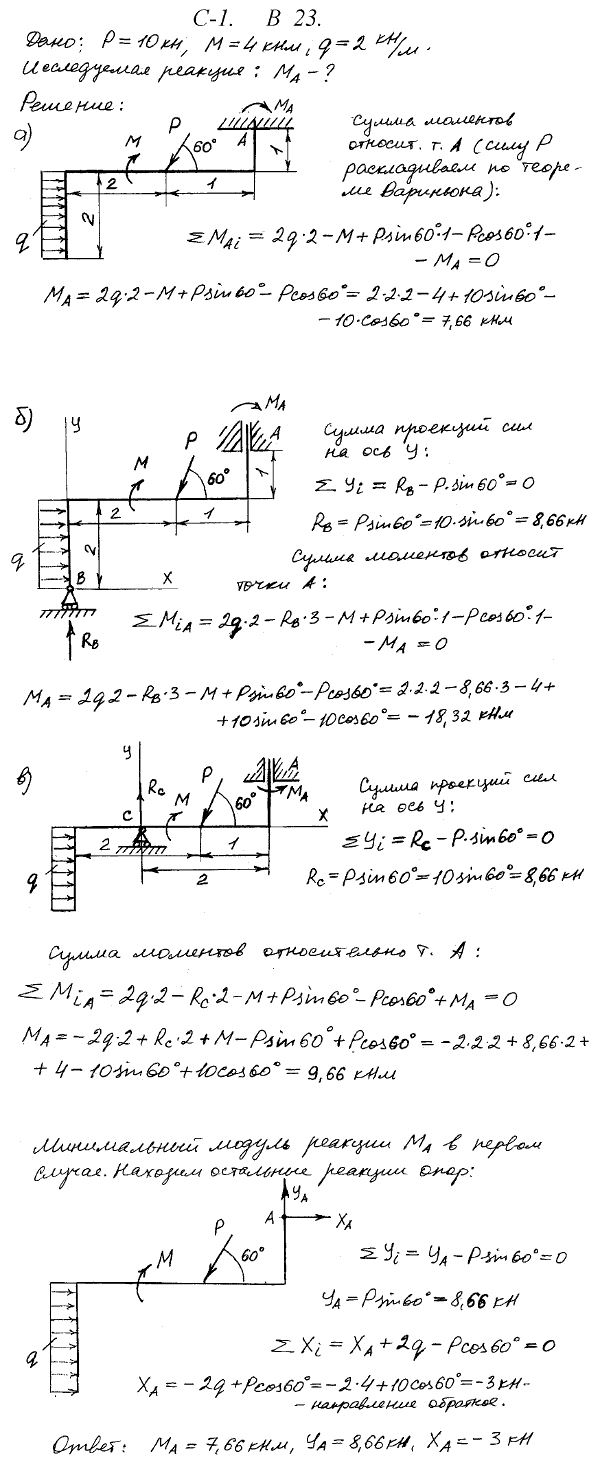 С-1. В 23.
Дано: P = 10 кн, M = 4 кнм, q = 2 кн/м.
Исследуемая реакция: MA - ?
Решение:
а)
MA
P
A
M
60°
1
2
1
2
q
Сумма моментов
относит. т. А (силу P
раскладываем по теоре-
ме Вариньона):
ΣMAi = 2q·2 - M + Psin60°·1 - Pcos60°·1 -
- MA = 0
MA = 2q·2 - M + Psin60° - Pcos60° = 2·2·2 - 4 + 10sin60° -
- 10·cos60° = 7,66 кНм
б)
y
MA
A
P
M
60°
1
2
1
2
q
B
x
RB
Сумма проекций сил
на ось y:
Σyi = RB - P·sin60° = 0
RB = Psin60° = 10·sin60° = 8,66 кН
Сумма моментов относит
точки А:
ΣMiA = 2q·2 - RB·3 - M + Psin60°·1 - Pcos60°·1 -
- MA = 0
MA = 2q2 - RB·3 - M + Psin60° - Pcos60° = 2·2·2 - 8,66·3 - 4 +
+ 10sin60° - 10cos60° = - 18,32 кНм
в)
y
RC
P
A
MA
M
60°
C
x
2
1
2
q
Сумма проекций сил
на ось y:
Σyi = RC - P·sin60° = 0
RC = Psin60° = 10sin60° = 8,66 кН
Сумма моментов относительно т. А:
ΣMiA = 2q·2 - RC·2 - M + Psin60° - Pcos60° + MA = 0
MA = -2q·2 + RC·2 + M - Psin60° + Pcos60° = -2·2·2 + 8,66·2 +
+ 4 - 10sin60° + 10cos60° = 9,66 кНм
Минимальный модуль реакции MA в первом
случае. Находим остальные реакции опор:
YA
A
XA
P
M
60°
q
Σyi = YA - Psin60° = 0
YA = Psin60° = 8,66 кН
ΣXi = XA + 2q - Pcos60° = 0
XA = -2q + Pcos60° = -2·4 + 10cos60° = -3 кН -
- направление обратное.
Ответ: MA = 7,66 кНм, YA = 8,66 кН, XA = -3 кН